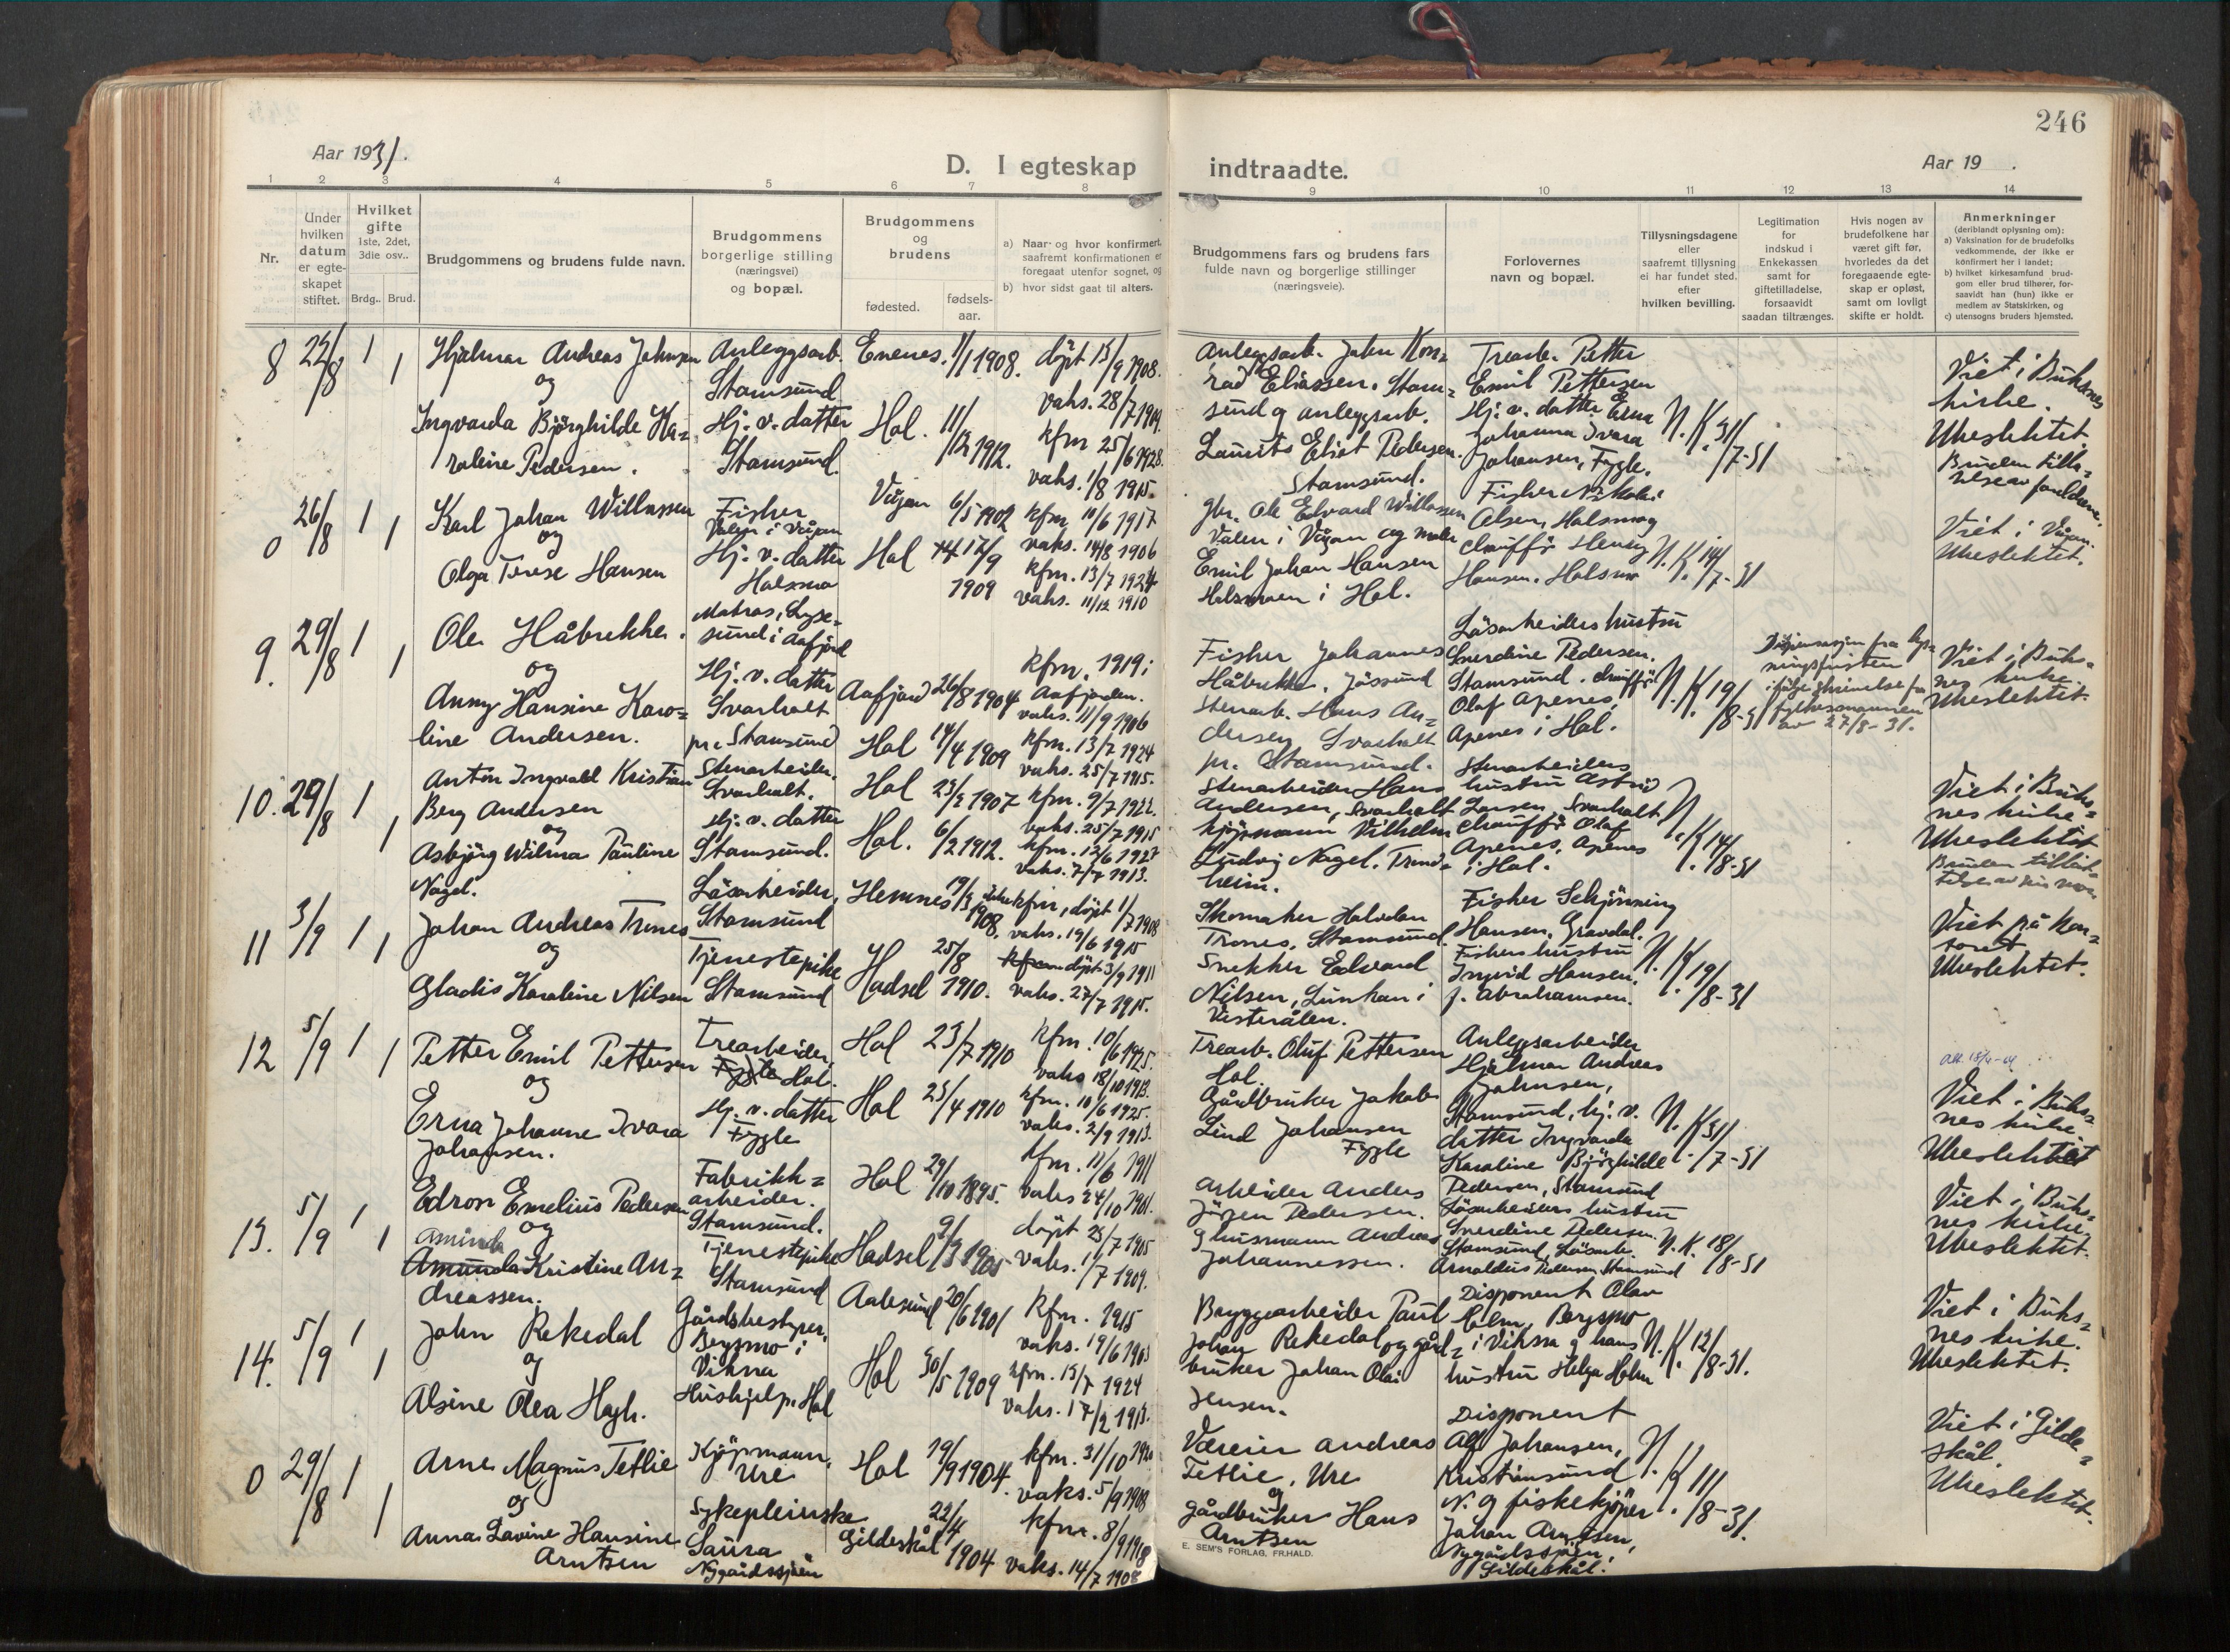 246
Aar 1931.
D. I egteskap
indtraadte.
Aar 19 .
1 2 3 4 5 6 7 8 9 10 11 12 13 14
Nr.
Under
hvilken
datum
er egte-
skapet
stiftet.
Hvilket
gifte
1ste, 2det,
3die osv..
Brdg.. Brud.
Brudgommens og brudens fulde navn.
Brudgommens
borgerlige stilling
(næringsvei)
og bopæl.
Brudgommens
og
brudens
fødested.
fødsels-
aar.
a) Naar- og hvor konfirmert,
saafremt konfirmationen er
foregaat utenfor sognet, og
b) hvor sidst gaat til alters.
Brudgommens fars og brudens fars
fulde navn og borgerlige stillinger
(næringsveie).
Forlovernes
navn og bopæl.
Tillysningsdagene
eller
saafremt tillysning
ei har fundet sted.
efter
hvilken bevilling.
Legitimation
for
indskud i
Enkekassen
samt for
giftetilladelse,
forsaavidt
saadan tiltrænges.
Hvis nogen av
brudefolkene har
været gift før,
hvorledes da det
foregaaende egte-
skap er opløst,
samt om lovligt
skifte er holdt.
Anmerkninger
(deriblandt oplysning om):
a) Vaksination for de brudefolks
vedkommende, der ikke er
konfirmert her i landet;
b) hvilket kirkesamfund brud-
gom eller brud tilhører, for-
saavidt han (hun) ikke er
medlem av Statskirken, og
c) utensogns bruders hjemsted.
8 22/8 1 1
Hjalmar Andreas Johnsen
og
Ingvarda Bjørghilde Ka-
roline Pedersen.
Anleggsarb.
Stamsund
Hj. v. datter
Stamsund.
Evenes. 1/1 1908.
Hol. 11/12 1912.
døpt 13/9 1908.
vaks. 28/7 1919.
kfm 25/6 1928.
vaks. 1/8 1915.
Anleggsarb. John Kon-
rad Eliassen. Stam-
sund og anleggsarb.
Laurits Eliot Pedersen.
Stamsund.
Trearb. Petter
Emil Pettersen
Hj. v. datter Erna
Johanna Ivara
Johansen, Fygle.
N. K. 31/7-31
Viet i Buksnes
kirke.
Ubeslektet.
0 26/8 1 1
Karl Johan Willassen
og
Olga Terese Hansen
Fisker
Valen i Vågan
Hj. v. datter
Holsmo
Vågan 6/5 1902
Hol 17/9
1909
kfm. 10/6 1917
vaks. 14/8 1906
kfm. 13/7 1924
vaks. 11/12 1910
gbr. Ole Edvard Willassen
Valen i Vågan og maler
Emil Johan Hansen
Holsmoen i Hol.
Fisker Nikolai
Olsen, Holsmo og
chauffør Henry
Hansen. Holsmo
N. K. 14/7-31
Viet i Vågan.
Ubeslektet.
9. 29/8 1 1
Ole Håbrekke.
og
Anny Hansine Karo-
line Andersen.
Matros, Lyse-
sund i Aafjord
Hj. v. datter
Svarholt
pr. Stamsund
Aafjord 26/8 1904
Hol 14/4 1909
kfm. 1919 i
Aafjorden.
vaks. 11/9 1906
kfm. 13/7 1924
vaks. 25/7 1915.
Fisker Johannes
Håbrekke. Jøssund
Stenarb. Hans An-
dersen Svarholt
pr. Stamsund.
Løsarbeiders hustru
Snerdine Pedersen.
Stamsund. chauffør
Olaf Apenes,
Apenes i Hol.
N. K. 19/8-31
av 27/8-31.
Viet i Buks-
nes kirke.
Ubeslektet.
10. 29/8 1 1
Anton Ingvald Kristian
Berg Andersen
og
Asbjørg Wilma Pauline
Nagel.
Stenarbeider.
Svarholt.
Hj. v. datter
Stamsund.
Hol 23/3 1907
Hol. 6/2 1912.
kfm. 9/7 1922.
vaks. 25/7 1915
kfm. 12/6 1927
vaks. 7/7 1913.
Stenarbeider Hans
Andersen, Svarholt
Kjøpmann Vilhelm
Ludvig Nagel. Trond-
heim.
Stenarbeiders
hustru Astrid
Larsen, Svarholt
Chauffør Olaf
Apenes, Apenes
i Hol.
N. K. 14/8-31
Viet i Buks-
nes kirke
Ubeslektet
11 3/9 1 1
Johan Andreas Trones
og
Gladis Karoline Nilsen
Løsarbeider,
Stamsund
Tjenestepike
Stamsund
Hemnes 19/3
1908.
25/8
Hadsel 1910.
ikke kfm, døpt 1/7 1908
vaks. 19/6 1915
døpt 3/9 1911
vaks. 27/7 1915.
Skomaker Halvdan
Trones. Stamsund.
Snekker Edvard
Nilsen, Lunkan i
Vesterålen.
Fisker Schjønning
Hansen, Gravdal.
Fiskers hustru
Ingrid Hansen.
f. Abrahamsen.
N. K. 19/8-31
Viet på kon-
toret
Ubeslektet.
12 5/9 1 1
Petter Emil Pettersen
og
Erna Johanne Ivara
Johansen.
Trearbeider
Hol.
Hj. v. datter
Fygle
Hol 23/7 1910
Hol 23/4 1910
kfm. 10/6 1925.
vaks 18/10 1913.
kfm. 10/6 1925.
vaks. 2/9 1913.
Trearb. Oluf Pettersen
Hol.
Gårdbruker Jakob
Lind Johansen
Fygle
Anleggsarbeider
Hjalmar Andreas
Johnsen,
Stamsund, hj. v.
datter Ingvarda
Karoline Bjørghilde
Pedersen, Stamsund
N. K. 31/7-31
Viet i Buks-
nes kirke.
Ubeslektet
13. 5/9 1 1
Edron Emelius Pedersen
og
Aminda
Amunda Kristine An-
dreassen.
Fabrikk-
arbeider.
Stamsund.
Tjenestepike
Stamsund
Hol 29/10 1895.
Hadsel 9/3 1905
kfm. 11/6 1911
vaks 24/10 1901.
døpt 23/7 1905
vaks. 1/7 1909.
Arbeider Anders
Jørgen Pedersen.
g husmann Andreas
Johannessen.
Løsarbeiders hustru
Snerdine Pedersen.
Stamsund, Løsarb.
Arnoldus Pedersen, Stamsund
N. K. 18/8-31
Viet i Buks-
nes kirke.
Ubeslektet.
14. 5/9 1 1
John Rekedal
og
Alsine Olea Hagh.
Gårdsbestyrer,
Bergsmo i
Vikna
Hushjelp. Hol
Aalesund 20/6 1901
Hol 30/5 1909
Kfm. 1915
vaks. 19/6 1903
kfm. 13/7 1924
vaks. 17/2 1913.
Bryggearbeider Paul
Johan Rekedal og gård-
bruker Johan Olai
Jensen.
Disponent Olav
Holm, Bergsmo
i Vikna g hans
hustru Helga Holm
N. K. 12/8-31.
Viet i Buks-
nes kirke.
Ubeslektet.
0 29/8 1 1
Arne Magnus Tetlie
og
Anna Lavine Hansine
Arntsen
Kjøpmann,
Ure
Sykepleierske
Saura
Nygårdssjøen
Hol 19/9 1904.
22/4
Gildeskål 1904
kfm. 31/10 1920
vaks. 5/9 1908
kfm. 8/9 1918
vaks. 14/7 1908
Væreier Andreas
Tetlie, Ure
og
gårdbruker Hans
Arntsen
Disponent
Alf Johansen,
Kristiansund
N. g fiskekjøper
Johan Arntsen,
Nygårdssjøen,
Gildeskål.
N. K. 11/8-31.
Viet i Gilde-
skål.
Ubeslektet.
E. SEM'S FORLAG, FR.HALD.